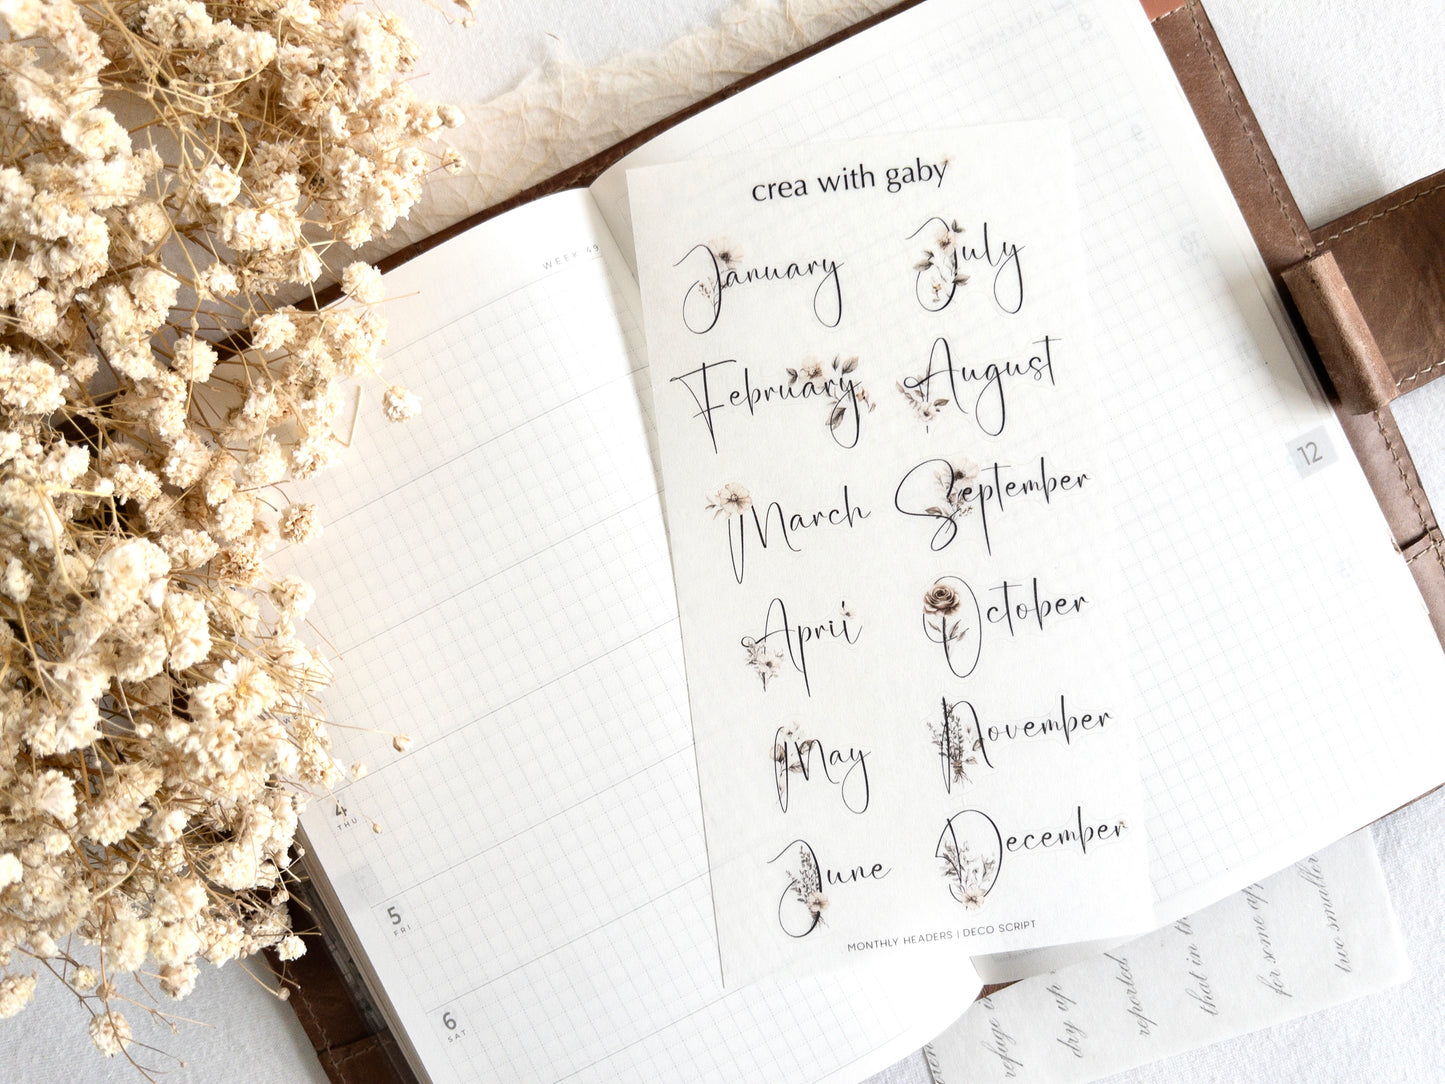 crea with gaby
January
February
March
April
May
June
July
August
September
October
November
December
MONTHLY HEADERS | DECO SCRIPT
WEEK 49
4
THU
5
FRI
6
SAT
12
refuge in
dry up
reported,
that in th
for some ap
two smaller